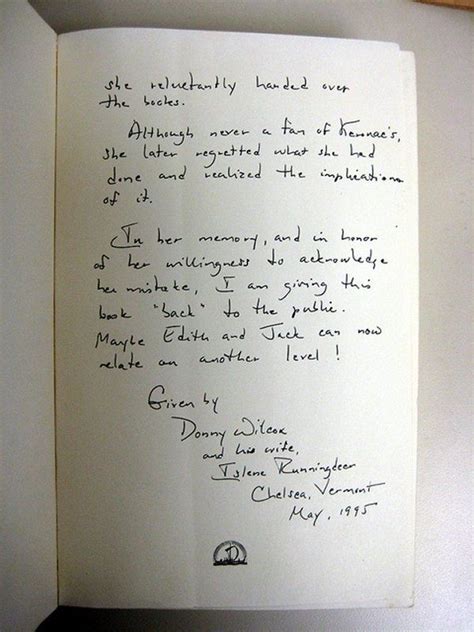 she reluctantly handed over
the books.
Although never a fan of Keronac's,
she later regretted what she had
done and realized the implications
of it.
In her memory, and in honor
of her willingness to acknowledge
her mistake, I am giving this
book "back" to the public.
Maybe Edith and Jack can now
relate on another level!
Given by
Donny Wilcox
and his wife,
Islene Runningdeer
Chelsea, Vermont
May, 1995